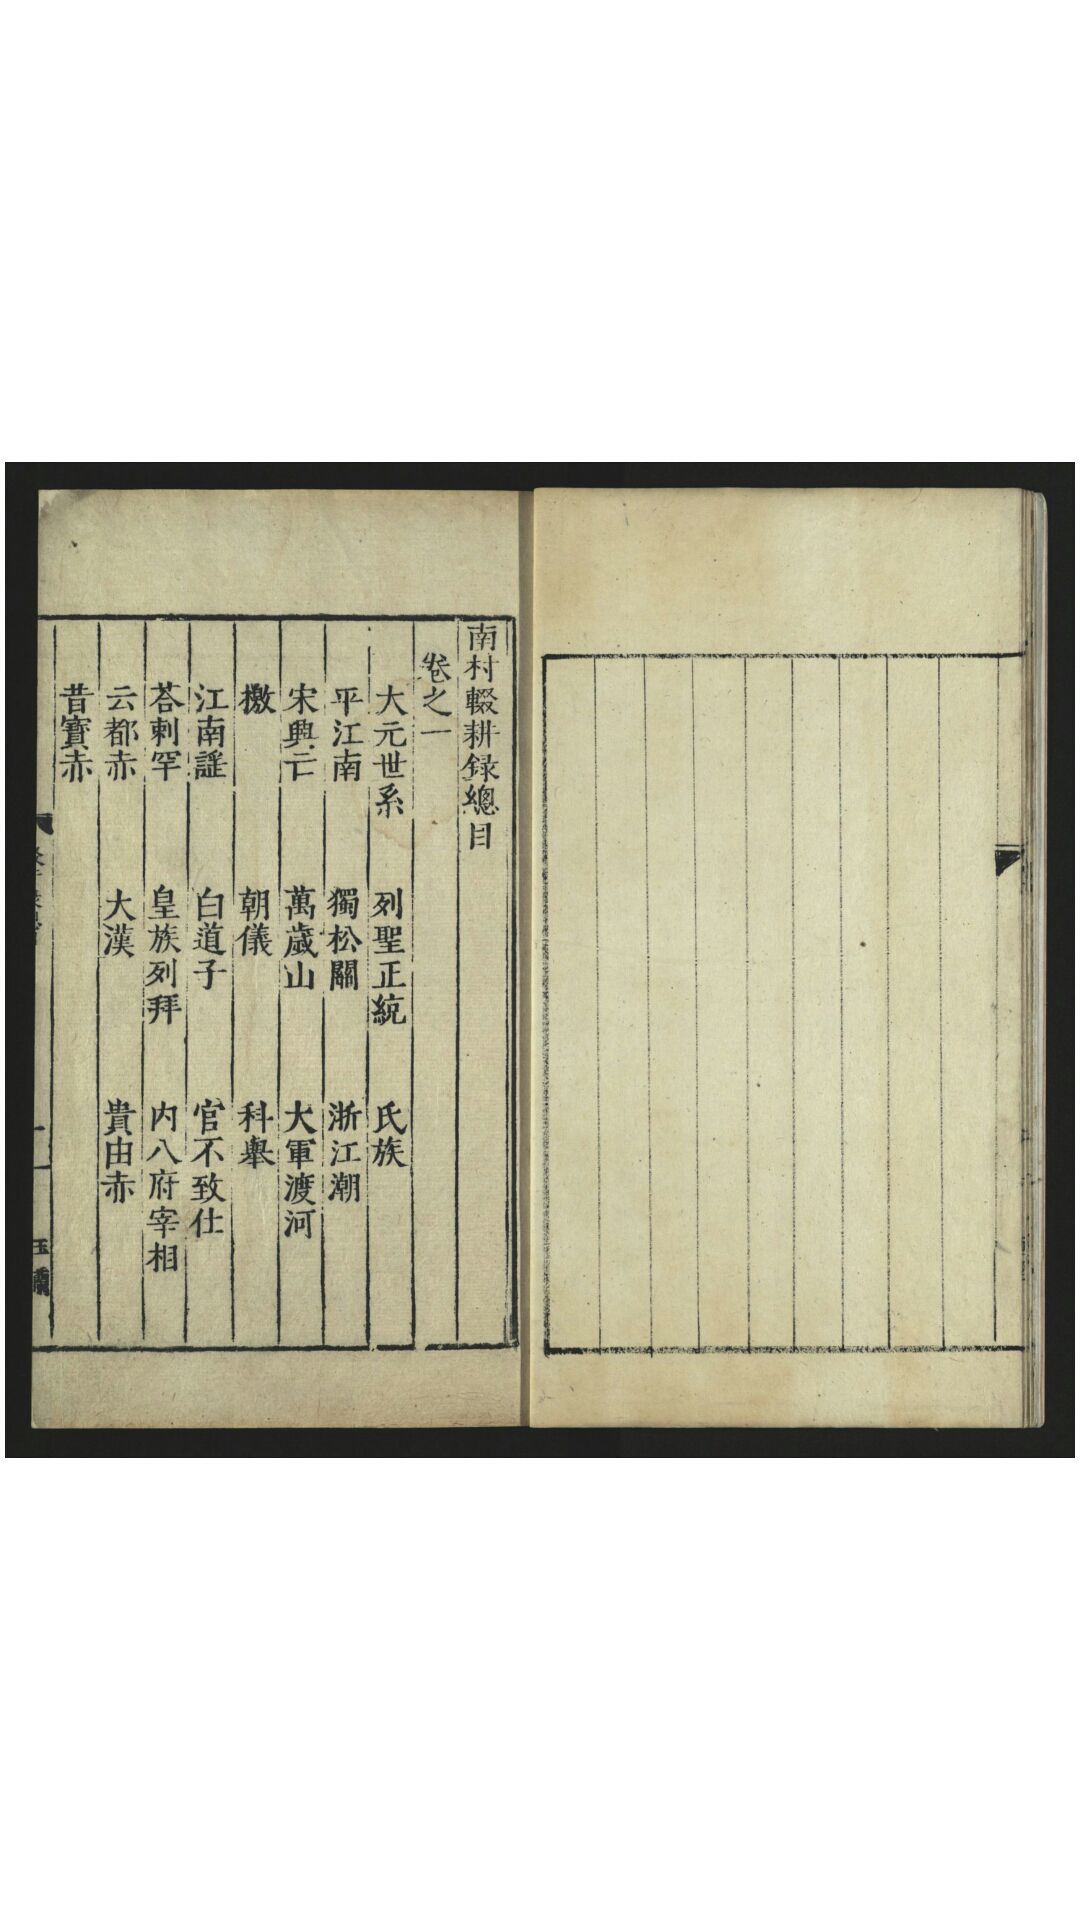 南村輟耕録總目
卷之一
大元世系　列聖正統　氏族
平江南　獨松關　浙江潮
宋興亡　萬歲山　大軍渡河
檄　朝儀　科舉
江南謠　白道子　官不致仕
荅剌罕　皇族列拜　内八府宰相
云都赤　大漢　貴由赤
昔寳赤